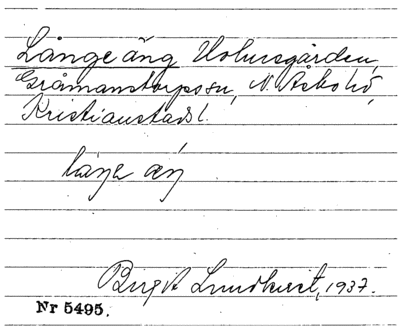 Långe äng Holmsgården,
Gråmanstorps sn, N. Åsbo hd,
Kristianstads l.
Birgit Lundkvist, 1937.
Nr 5495.